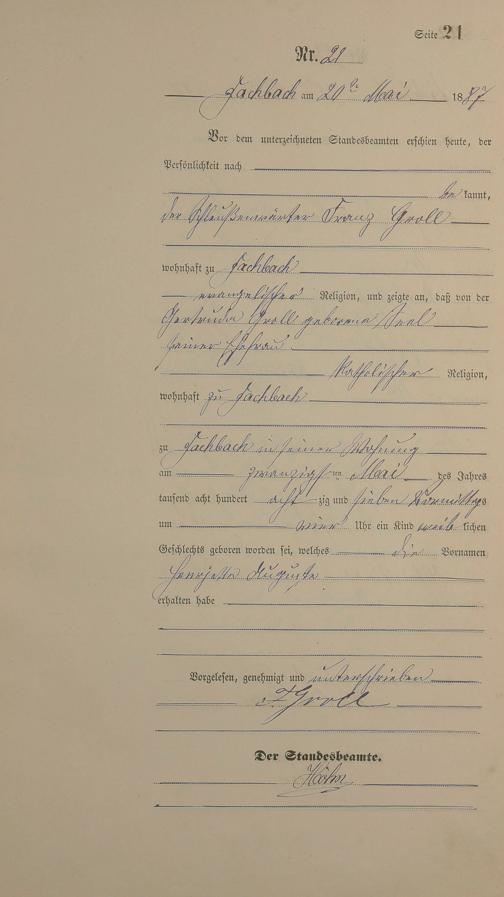 Seite 21
Nr. 21
Fachbach am 20ten Mai 1887
Vor dem unterzeichneten Standesbeamten erschien heute, der
Persönlichkeit nach
be kannt,
der Schleußenwärter Franz Groll
wohnhaft zu Fachbach
evangelischer Religion, und zeigte an, daß von der
Gertruda Groll geborene Seel
seiner Ehefrau
katholischer Religion,
wohnhaft zu Fachbach
zu Fachbach in seiner Wohnung
am zwanzigsten Mai des Jahres
tausend acht hundert acht zig und sieben Vormittags
um vier Uhr ein Kind weib lichen
Geschlechts geboren worden sei, welches die Vornamen
Henriette Auguste
erhalten habe
Vorgelesen, genehmigt und unterschrieben
F Groll
Der Standesbeamte.